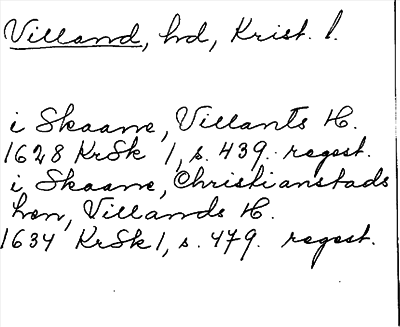 Villand, hd, Krist. l.
i Skaane, Villants H.
1628 KrSk 1, s. 439. regest.
i Skaane, Christianstads
len, Villands H.
1634 KrSk 1, s. 479. regest.